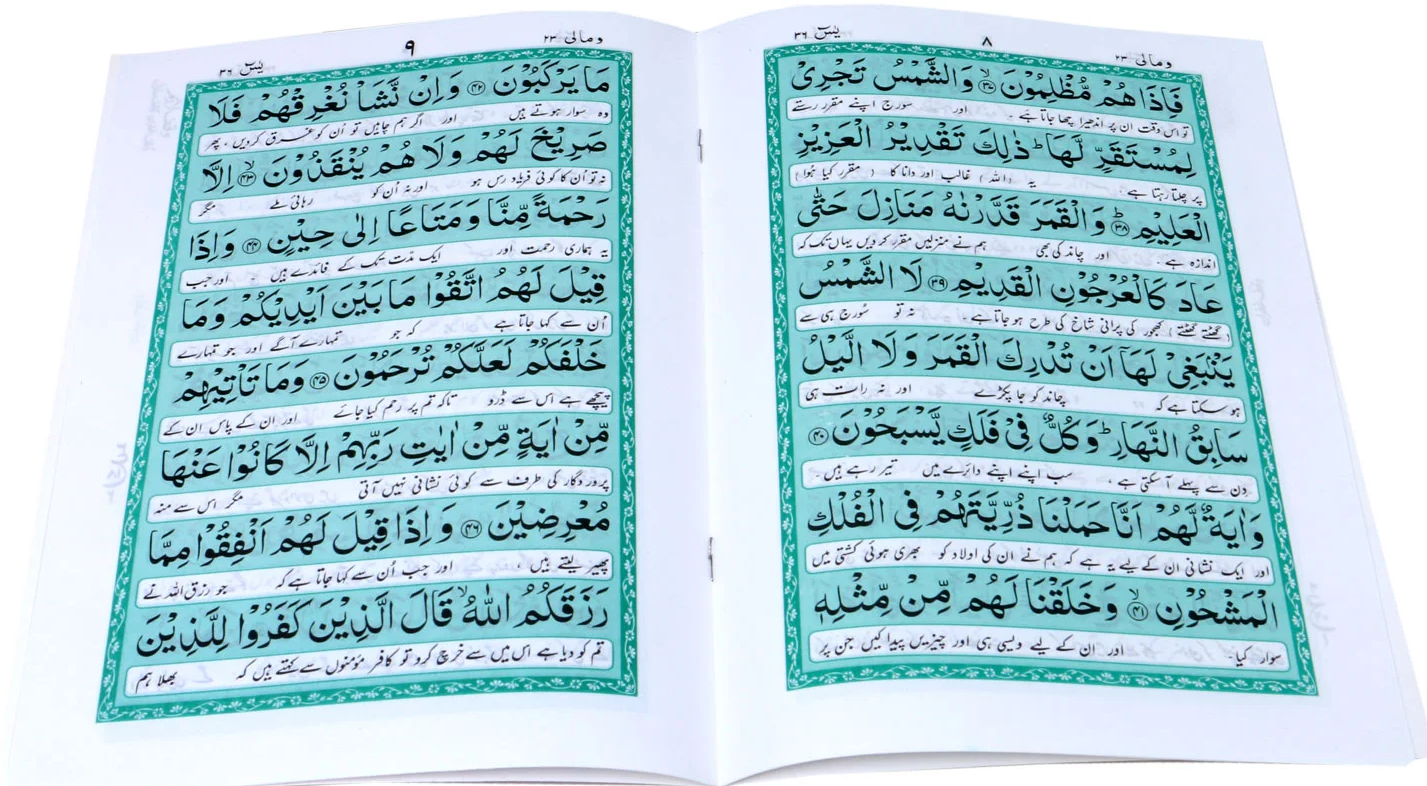 ومالی ۲۳
۸
یٰسٓ ۳۶
فَاِذَا هُمْ مُّظْلِمُوْنَ ۙ﴿۳۷﴾ وَالشَّمْسُ تَجْرِیْ
تو اس وقت ان پر اندھیرا چھا جاتا ہے ۔ اور سورج اپنے مقرر رستے
لِمُسْتَقَرٍّ لَّهَا ؕ ذٰلِكَ تَقْدِیْرُ الْعَزِیْزِ
پر چلتا رہتا ہے ۔ یہ (اللہ) غالب اور دانا کا (مقرر کیا ہُوا)
الْعَلِیْمِ ؕ﴿۳۸﴾ وَالْقَمَرَ قَدَّرْنٰهُ مَنَازِلَ حَتّٰی
اندازہ ہے ۔ اور چاند کی بھی ہم نے منزلیں مقرر کر دیں یہاں تک کہ
عَادَ كَالْعُرْجُوْنِ الْقَدِیْمِ ﴿۳۹﴾ لَا الشَّمْسُ
(گھٹتے گھٹتے) کھجور کی پرانی شاخ کی طرح ہو جاتا ہے نہ تو سُورج ہی سے
یَنْۢبَغِیْ لَهَاۤ اَنْ تُدْرِكَ الْقَمَرَ وَلَا الَّیْلُ
ہو سکتا ہے کہ چاند کو جا پکڑے اور نہ رات ہی
سَابِقُ النَّهَارِ ؕ وَكُلٌّ فِیْ فَلَكٍ یَّسْبَحُوْنَ ﴿۴۰﴾
دن سے پہلے آ سکتی ہے ، سب اپنے اپنے دائرے میں تیر رہے ہیں ۔
وَاٰیَةٌ لَّهُمْ اَنَّا حَمَلْنَا ذُرِّیَّتَهُمْ فِی الْفُلْكِ
اور ایک نشانی ان کے لیے یہ ہے کہ ہم نے ان کی اولاد کو بھری ہوئی کشتی میں
الْمَشْحُوْنِ ۙ﴿۴۱﴾ وَخَلَقْنَا لَهُمْ مِّنْ مِّثْلِهٖ
سوار کیا۔ اور ان کے لیے ویسی ہی اور چیزیں پیدا کیں جن پر
ومالی ۲۳
۹
یٰسٓ ۳۶
مَا یَرْكَبُوْنَ ﴿۴۲﴾ وَاِنْ نَّشَاْ نُغْرِقْهُمْ فَلَا
وہ سوار ہوتے ہیں اور اگر ہم چاہیں تو اُن کو غرق کردیں ، پھر
صَرِیْخَ لَهُمْ وَلَا هُمْ یُنْقَذُوْنَ ۙ﴿۴۳﴾ اِلَّا
نہ تو اُن کا کوئی فریاد رس ہو اور نہ اُن کو رہائی ملے مگر
رَحْمَةً مِّنَّا وَمَتَاعًا اِلٰی حِیْنٍ ﴿۴۴﴾ وَاِذَا
یہ ہماری رحمت اور ایک مدّت تک کے فائدے ہیں اور جب
قِیْلَ لَهُمُ اتَّقُوْا مَا بَیْنَ اَیْدِیْكُمْ وَمَا
اُن سے کہا جاتا ہے کہ جو تمہارے آگے اور جو تمہارے
خَلْفَكُمْ لَعَلَّكُمْ تُرْحَمُوْنَ ﴿۴۵﴾ وَمَا تَاْتِیْهِمْ
پیچھے ہے اس سے ڈرو تاکہ تم پر رحم کیا جائے اور ان کے پاس ان کے
مِّنْ اٰیَةٍ مِّنْ اٰیٰتِ رَبِّهِمْ اِلَّا كَانُوْا عَنْهَا
پروردگار کی طرف سے کوئی نشانی نہیں آتی مگر اس سے منہ
مُعْرِضِیْنَ ﴿۴۶﴾ وَاِذَا قِیْلَ لَهُمْ اَنْفِقُوْا مِمَّا
پھیر لیتے ہیں ، اور جب اُن سے کہا جاتا ہے کہ جو رزق اللہ نے
رَزَقَكُمُ اللّٰهُ ۙ قَالَ الَّذِیْنَ كَفَرُوْا لِلَّذِیْنَ
تم کو دیا ہے اس میں سے خرچ کرو تو کافر مؤمنوں سے کہتے ہیں کہ بھلا ہم